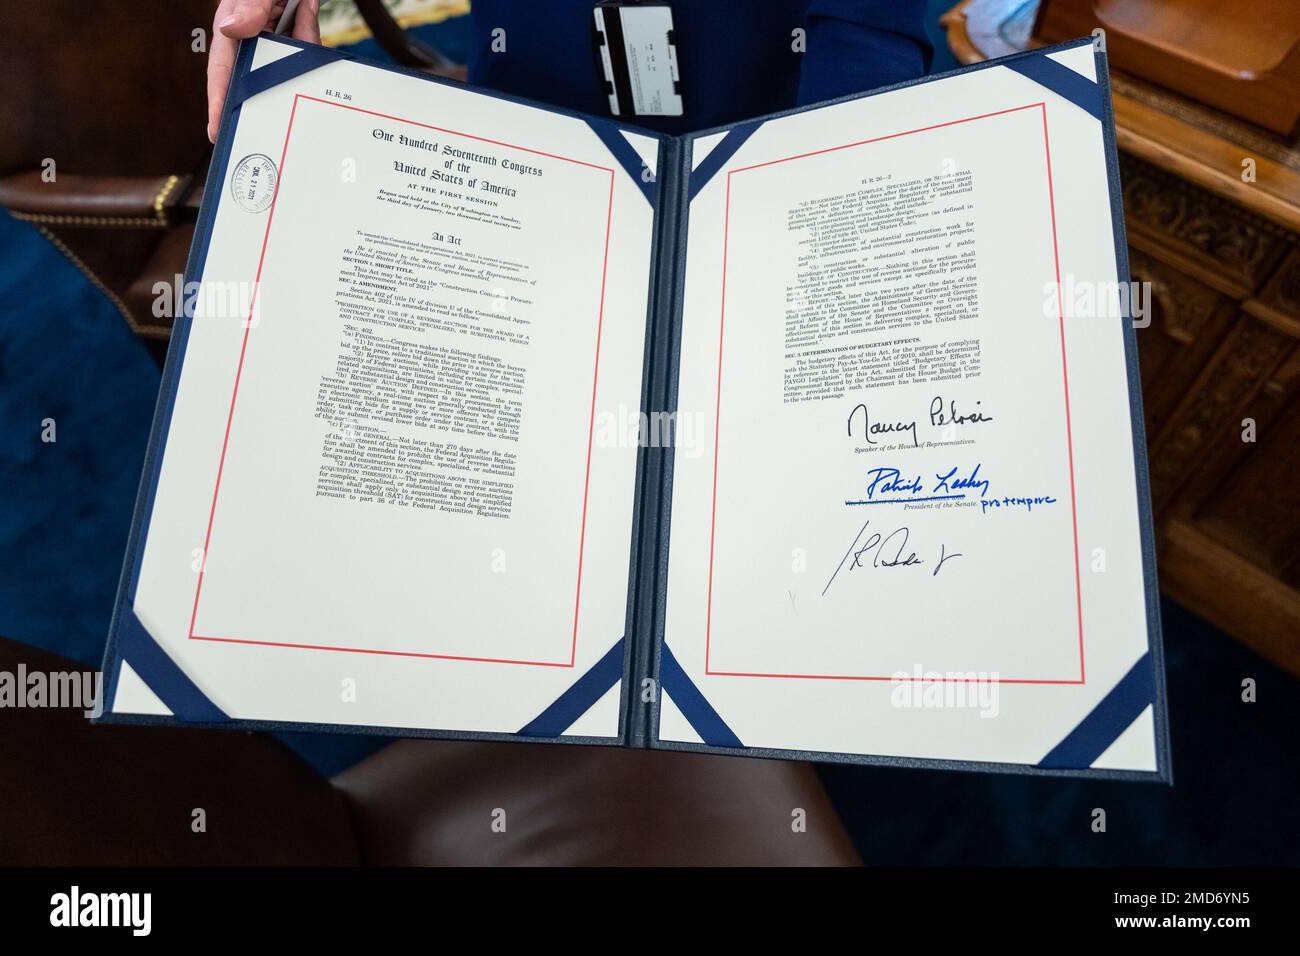 H. R. 26
One Hundred Seventeenth Congress
of the
United States of America
AT THE FIRST SESSION
Begun and held at the City of Washington on Sunday,
the third day of January, two thousand and twenty-one
THE WHITE HOUSE
JUL 21 2021
RECEIVED
An Act
To amend the Consolidated Appropriations Act, 2021, to correct a provision on
the prohibition on the use of a reverse auction, and for other purposes.
Be it enacted by the Senate and House of Representatives of
the United States of America in Congress assembled,
SECTION 1. SHORT TITLE.
This Act may be cited as the "Construction Consensus Procure-
ment Improvement Act of 2021".
SEC. 2. AMENDMENT.
Section 402 of title IV of division U of the Consolidated Appro-
priations Act, 2021, is amended to read as follows:
"PROHIBITION ON USE OF A REVERSE AUCTION FOR THE AWARD OF A
CONTRACT FOR COMPLEX, SPECIALIZED, OR SUBSTANTIAL DESIGN
AND CONSTRUCTION SERVICES
"SEC. 402.
"(a) FINDINGS.—Congress makes the following findings:
"(1) In contrast to a traditional auction in which the buyers
bid up the price, sellers bid down the price in a reverse auction.
"(2) Reverse auctions, while providing value for the vast
majority of Federal acquisitions, including certain construction-
related acquisitions, are limited in value for complex, special-
ized, or substantial design and construction services.
"(b) REVERSE AUCTION DEFINED.—In this section, the term
'reverse auction' means, with respect to any procurement by an
executive agency, a real-time auction generally conducted through
an electronic medium among two or more offerors who compete
by submitting bids for a supply or service contract, or a delivery
order, task order, or purchase order under the contract, with the
ability to submit revised lower bids at any time before the closing
of the auction.
"(c) PROHIBITION.—
"(1) IN GENERAL.—Not later than 270 days after the date
of the enactment of this section, the Federal Acquisition Regula-
tion shall be amended to prohibit the use of reverse auctions
for awarding contracts for complex, specialized, or substantial
design and construction services.
"(2) APPLICABILITY TO ACQUISITIONS ABOVE THE SIMPLIFIED
ACQUISITION THRESHOLD.—The prohibition on reverse auctions
for complex, specialized, or substantial design and construction
services shall apply only to acquisitions above the simplified
acquisition threshold (SAT) for construction and design services
pursuant to part 36 of the Federal Acquisition Regulation.
H. R. 26—2
"(d) RULEMAKING FOR COMPLEX, SPECIALIZED, OR SUBSTANTIAL
SERVICES.—Not later than 180 days after the date of the enactment
of this section, the Federal Acquisition Regulatory Council shall
promulgate a definition of complex, specialized, or substantial
design and construction services, which shall include—
"(1) site planning and landscape design;
"(2) architectural and engineering services (as defined in
section 1102 of title 40, United States Code);
"(3) interior design;
"(4) performance of substantial construction work for
facility, infrastructure, and environmental restoration projects;
and
"(5) construction or substantial alteration of public
buildings or public works.
"(e) RULE OF CONSTRUCTION.—Nothing in this section shall
be construed to restrict the use of reverse auctions for the procure-
ment of other goods and services except as specifically provided
for under this section.
"(f) REPORT.—Not later than two years after the date of the
enactment of this section, the Administrator of General Services
shall submit to the Committee on Homeland Security and Govern-
mental Affairs of the Senate and the Committee on Oversight
and Reform of the House of Representatives a report on the
effectiveness of this section in delivering complex, specialized, or
substantial design and construction services to the United States
Government.".
SEC. 3. DETERMINATION OF BUDGETARY EFFECTS.
The budgetary effects of this Act, for the purpose of complying
with the Statutory Pay-As-You-Go Act of 2010, shall be determined
by reference to the latest statement titled "Budgetary Effects of
PAYGO Legislation" for this Act, submitted for printing in the
Congressional Record by the Chairman of the House Budget Com-
mittee, provided that such statement has been submitted prior
to the vote on passage.
Nancy Pelosi
Speaker of the House of Representatives.
Patrick Leahy
Vice President of the United States and
President of the Senate. pro tempore
alamy
Image ID: 2MD6YN5
www.alamy.com